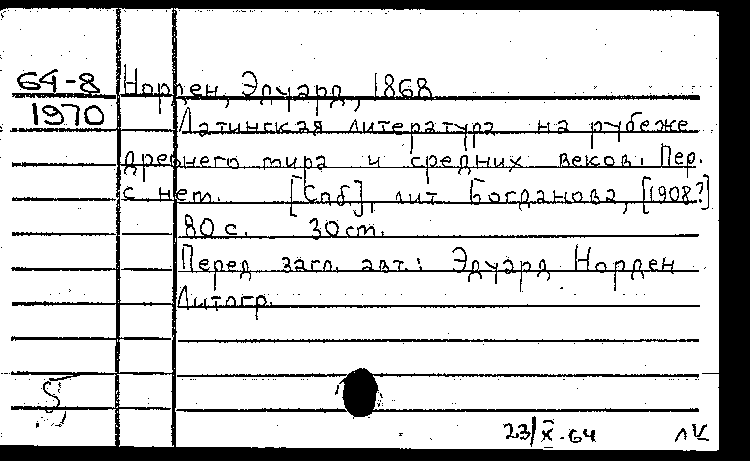 64-8 Норден, Эдуард, 1868
1970
Латинская литература на рубеже
древнего мира и средних веков. Пер.
с нем. [Спб], лит. Богданова, [1908?]
80 с. 30 см.
Перед загл. авт.: Эдуард Норден
Литогр.
23/X-64 ЛК